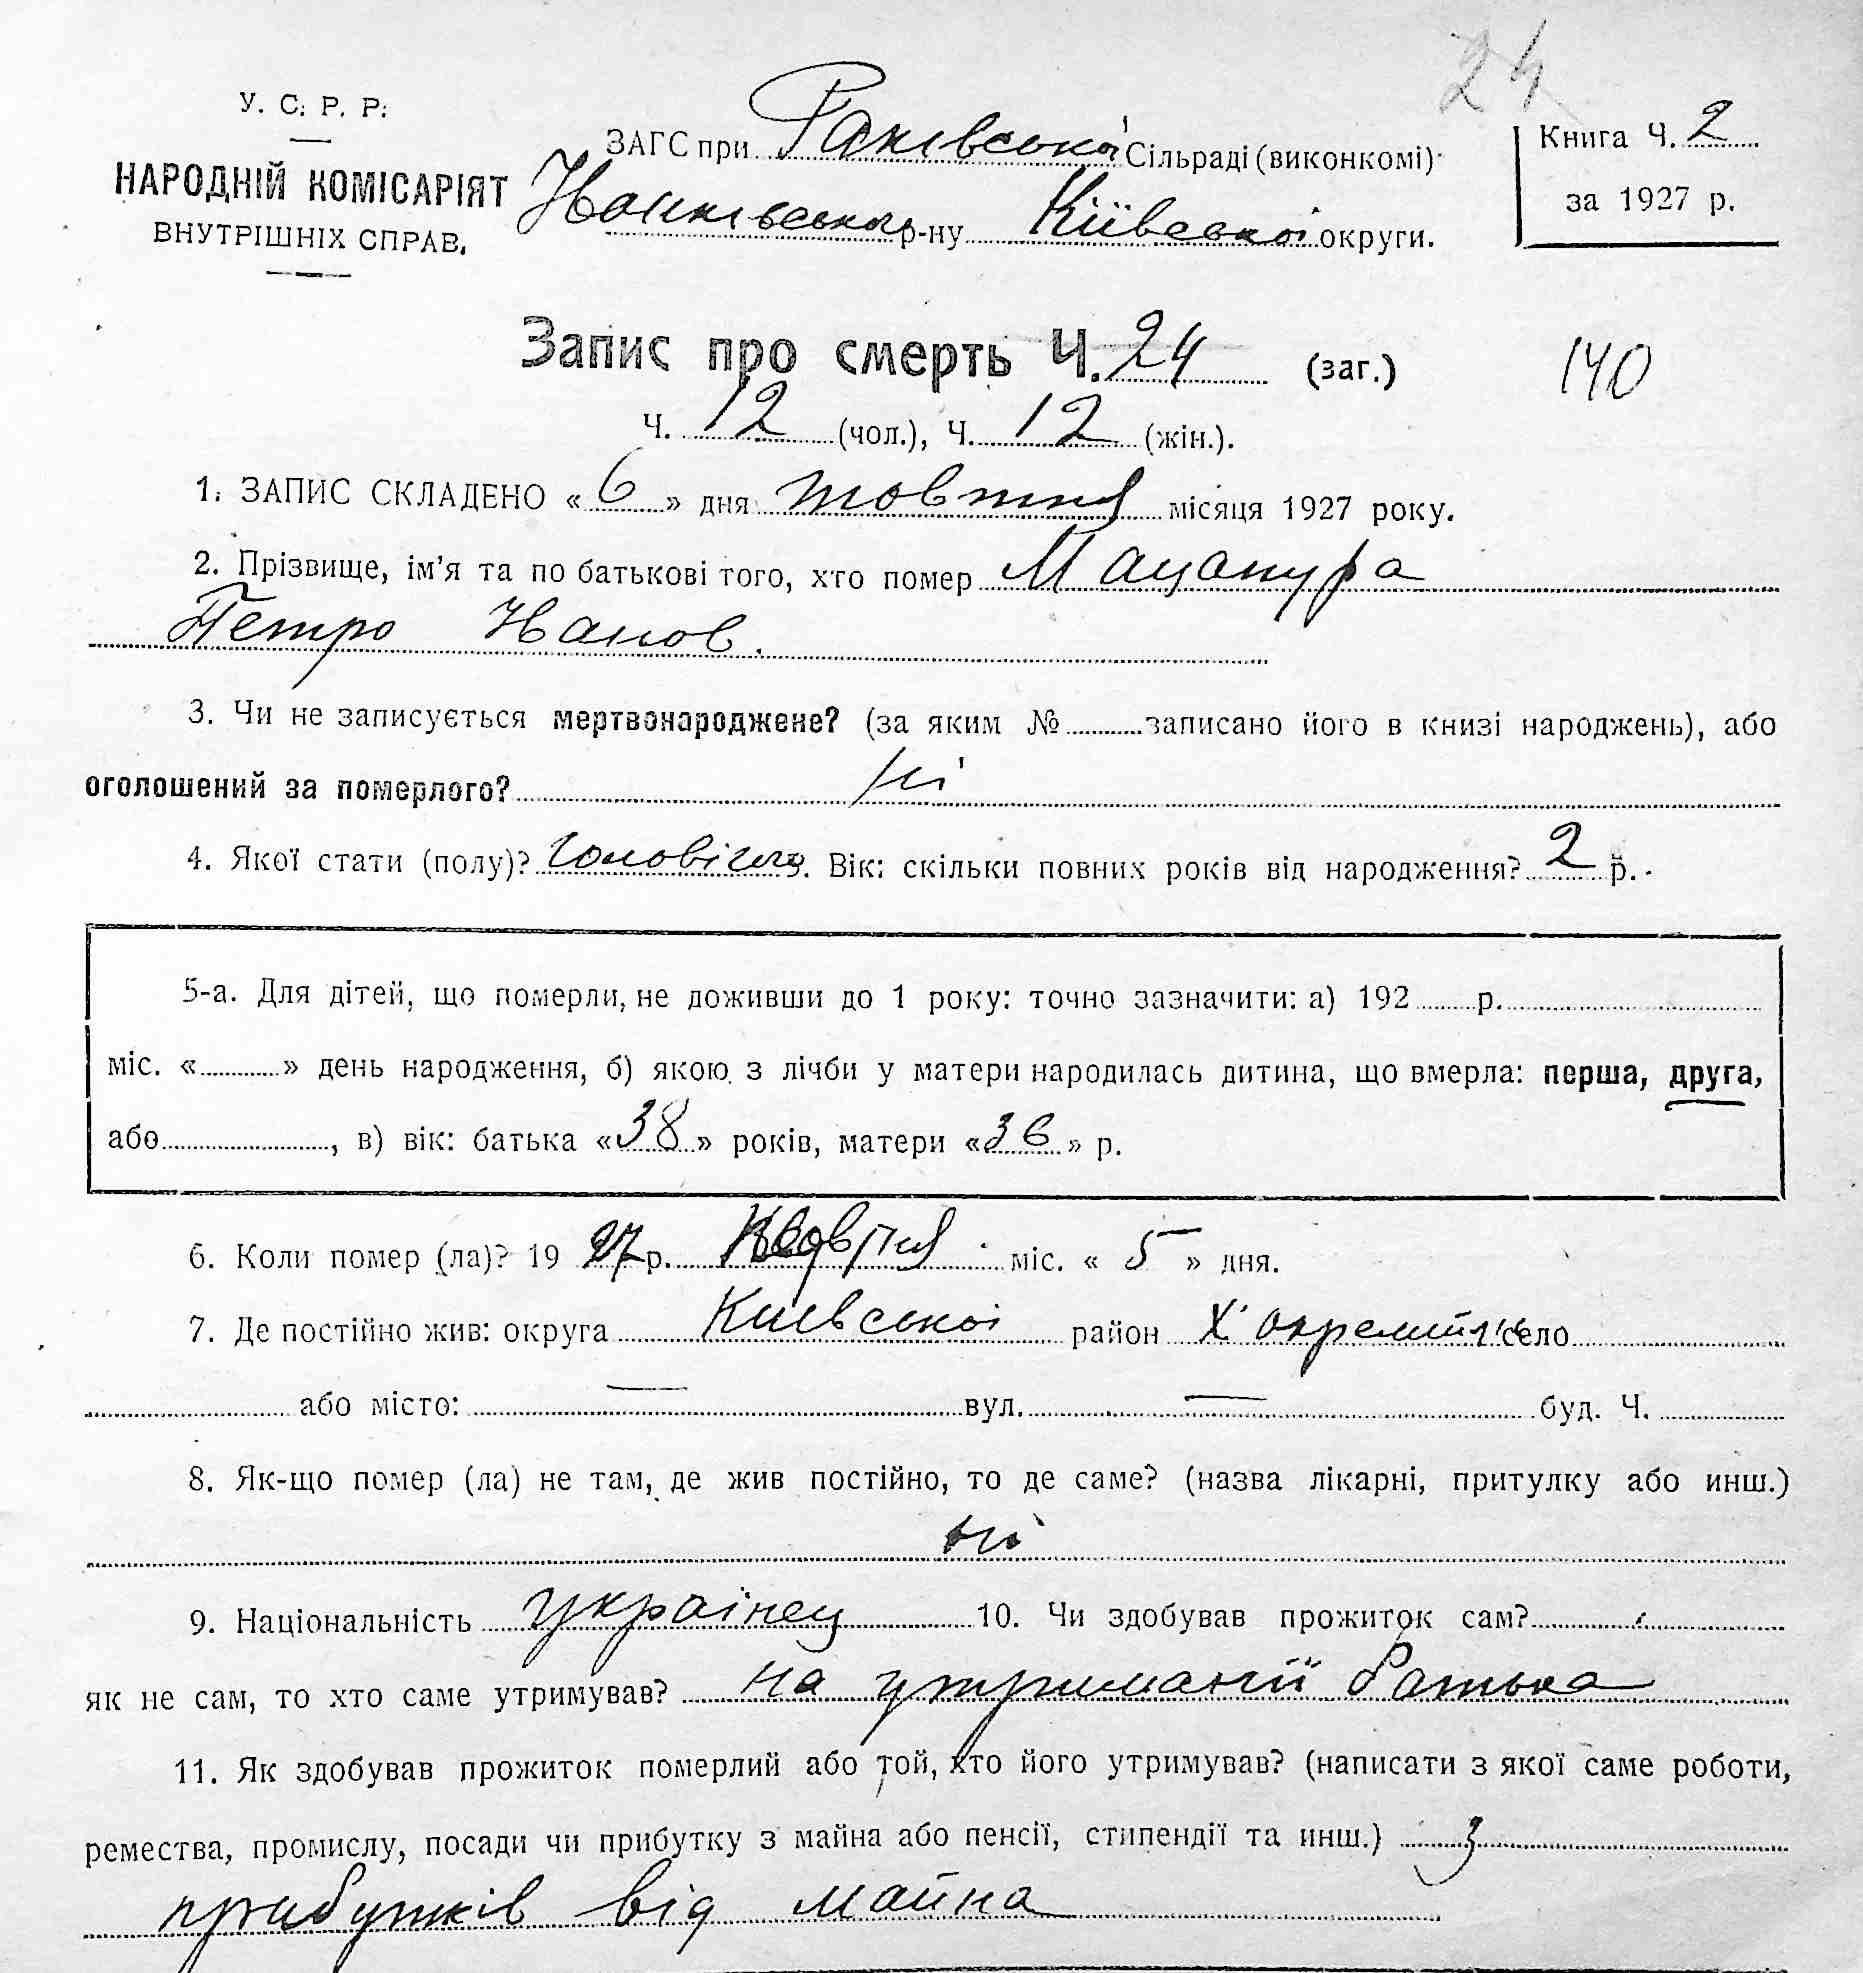 24
У. С. Р. Р.
НАРОДНІЙ КОМІСАРІЯТ
ВНУТРІШНІХ СПРАВ.
ЗАГС при Раківській Сільраді (виконкомі)
р-ну Київської округи.
Книга Ч. 2
за 1927 р.
Запис про смерть Ч. 24 (заг.)
140
Ч. 12 (чол.), Ч. 12 (жін.).
1. ЗАПИС СКЛАДЕНО «6» дня жовтня місяця 1927 року.
2. Прізвище, ім'я та по батькові того, хто помер Мацапура
Петро Иванов.
3. Чи не записується мертвонароджене? (за яким № записано його в книзі народжень), або
оголошений за померлого? ні
4. Якої стати (полу)? Вік: скільки повних років від народження? 2 р.
5-а. Для дітей, що померли, не доживши до 1 року: точно зазначити: а) 192 р.
міс. « » день народження, б) якою з лічби у матери народилась дитина, що вмерла: перша, друга,
або , в) вік: батька «38» років, матери «36» р.
6. Коли помер (ла)? 1927 р. міс. «5» дня.
7. Де постійно жив: округа Київської район село
або місто: — вул. — буд. Ч.
8. Як-що помер (ла) не там, де жив постійно, то де саме? (назва лікарні, притулку або инш.)
ні
9. Національність українец 10. Чи здобував прожиток сам?
як не сам, то хто саме утримував? на утриманії батька
11. Як здобував прожиток померлий або той, хто його утримував? (написати з якої саме роботи,
ремества, промислу, посади чи прибутку з майна або пенсії, стипендії та инш.) з
прибутків від майна